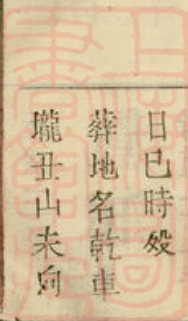 日巳時歿
葬地名乾車
壠丑山未向